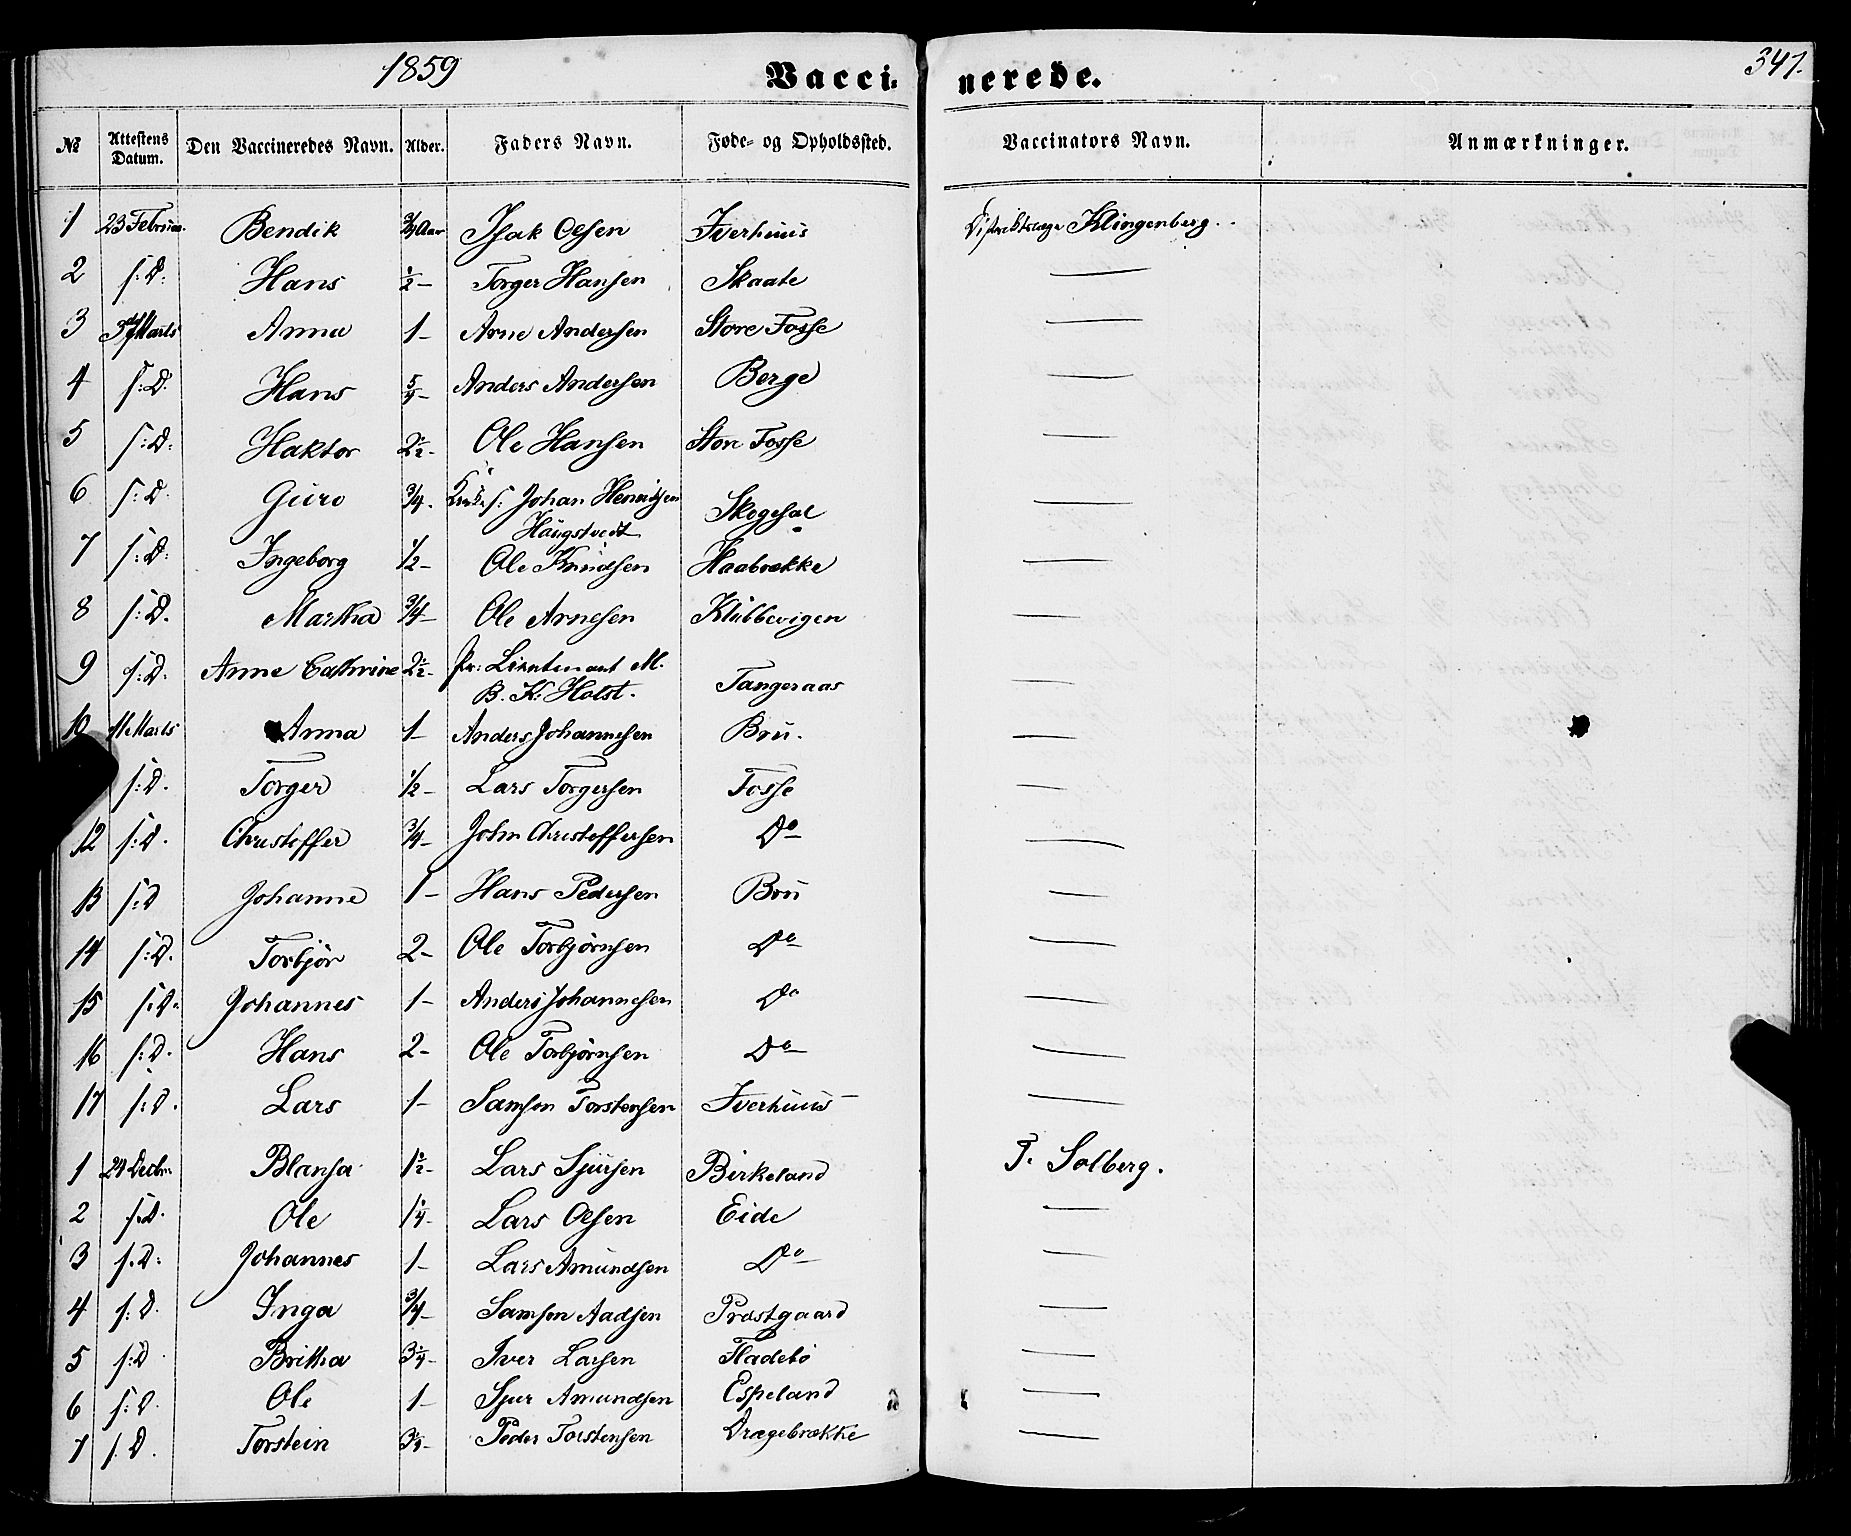 1859 Vacci- nerede. 347.
№ Attestens Datum. Den Vaccineredes Navn. Alder. Faders Navn. Føde- og Opholdssted. Vaccinators Navn. Anmærkninger.
1 23 Februar Bendik 3/4 Aar Isak Olsen Iverhuus Distriktslæge Klingenberg.
2 s: D: Hans 1/2 – Torger Hansen Skaate —
3 3die Marts Anna 1 – Arne Andersen Store Fosse —
4 s: D. Hans 5/4 – Anders Andersen Berge —
5 s: D: Haktor 2 1/2 – Ole Hansen Store Fosse —
6 s: D. Guro 3/4 – s: Johan Henriksen Skogesal —
Haugstvedt
7 s: D: Ingeborg 1/2 – Ole Knudsen Haabrække —
8 s: D. Martha 3/4 – Ole Arnesen Klubbevigen —
9 s: D. Anne Cathrine 2 1/2 – Pr: Lieutenant M. Tangeraas —
B. K. Holst.
10 11 Marts Anna 1 – Anders Johannesen Bru. —
s: D. Torger 1/2 – Lars Torgersen Fosse —
12 s: D. Christoffer 3/4 – John Christoffersen Do —
13 s: D Johanne 1 – Hans Pedersen Bru —
14 s: D. Torbjør 2 – Ole Torbjørnsen Do —
15 s: D. Johannes 1 – Anders Johannesen Do —
16 s: D. Hans 2 – Ole Torbjørnsen Do —
17 s: D. Lars 1 – Samson Torstensen Iverhuus —
1 24 Decbr. Blansa 1 1/2 – Lars Sjursen Birkeland T. Solberg.
2 s: D. Ole 1 1/4 – Lars Olsen Eide —
3 s: D: Johannes 1 – Lars Amundsen Do —
4 s: D. Inga 3/4 – Samson Aadsen Præstgaard —
5 s: D Brittha 3 1/4 – Iver Larsen Fladebø —
6 s: D. Ole 1 – Sjur Amundsen Espeland —
7 s. D. Torstein – Peder Torstensen Dragebrække —